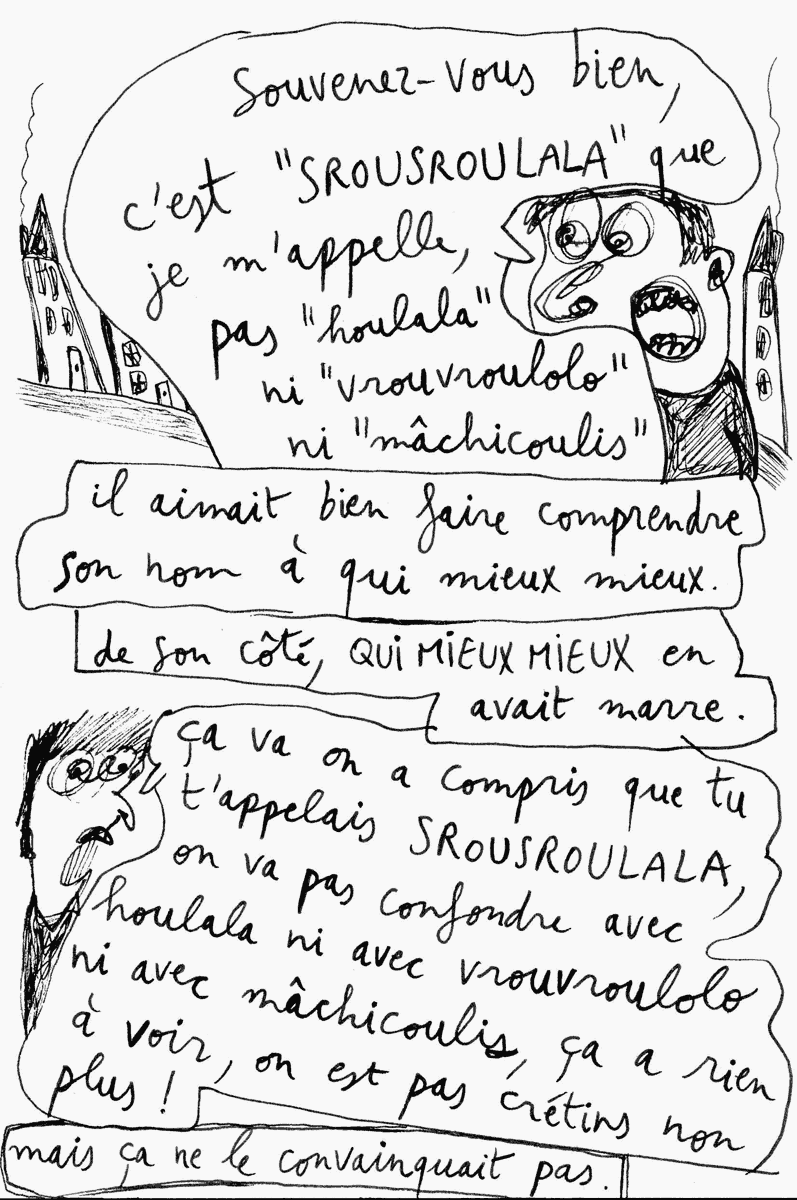 Souvenez-vous bien,
c'est "SROUSROULALA" que
je m'appelle,
pas "houlala"
ni "vrouvroulolo"
ni "mâchicoulis"
il aimait bien faire comprendre
son nom à qui mieux mieux.
de son côté, QUI MIEUX MIEUX en
avait marre.
ça va on a compris que tu
t'appelais SROUSROULALA,
on va pas confondre avec
houlala ni avec vrouvroulolo
ni avec mâchicoulis, ça a rien
à voir, on est pas crétins non
plus !
mais ça ne le convainquait pas.